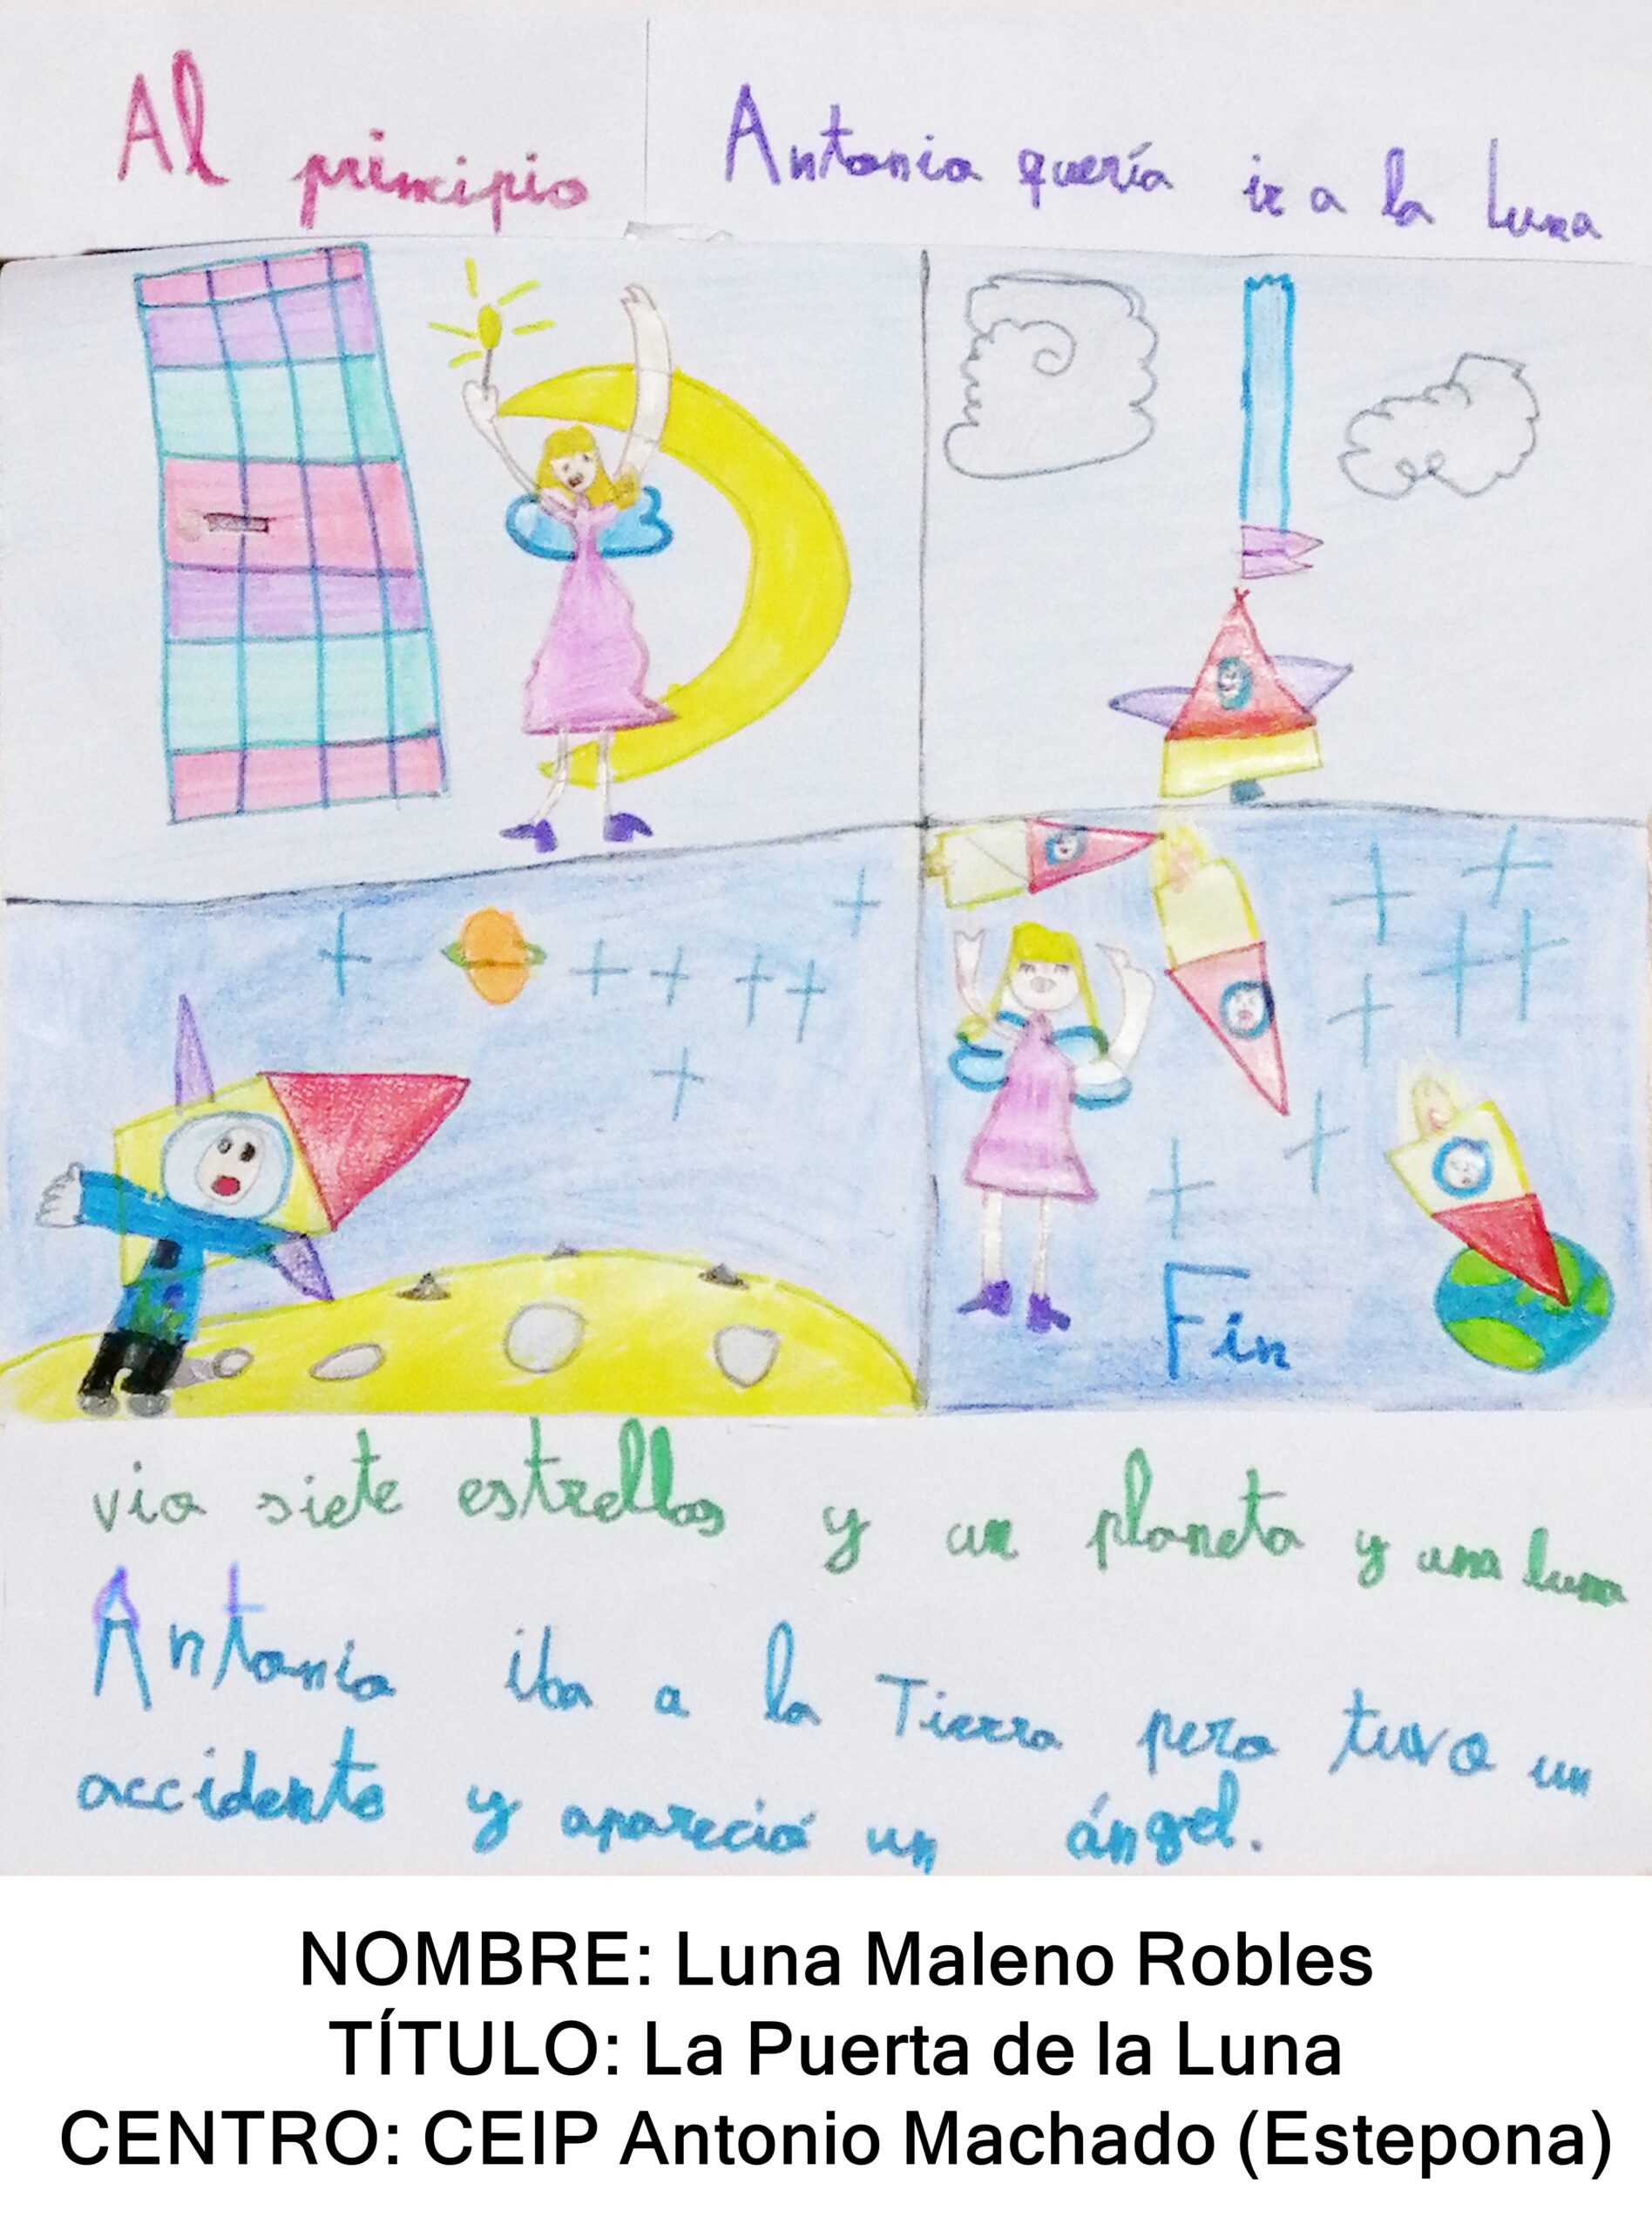 Al principio
Antonia quería ir a la Luna
Fin
via siete estrellas y un planeta y una luna
Antonia iba a la Tierra pero tuvo un
accidente y apareció un ángel.
NOMBRE: Luna Maleno Robles
TÍTULO: La Puerta de la Luna
CENTRO: CEIP Antonio Machado (Estepona)